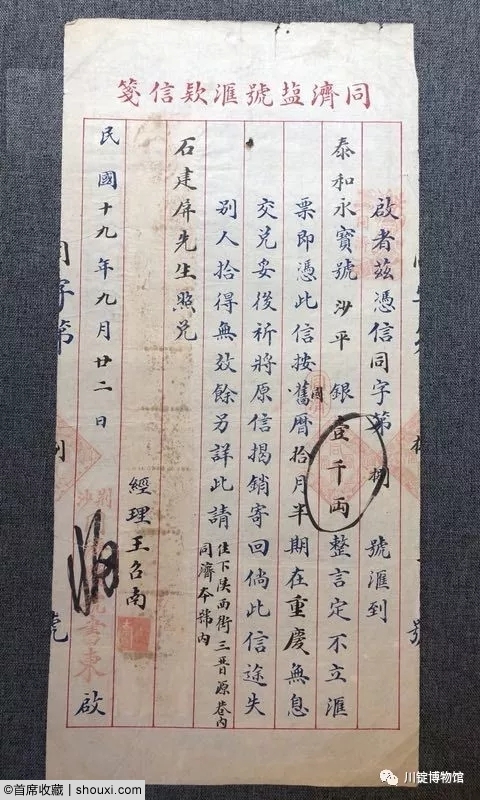 同濟塩號滙欵信箋
啟者茲憑信同字第捌號滙到
泰和永寶號沙平銀壹千両整言定不立滙
票即憑此信按舊國曆拾月半期在重慶無息
交兌妥後祈將原信揭銷寄回倘此信途失
別人拾得無效餘另詳此請
住下陕西街三晉源巷内
同濟本號内
石建屏先生照兌
經理王召南
民國十九年九月廿二日
啟
同字第
號
©首席收藏 | shouxi.com
川锭博物馆